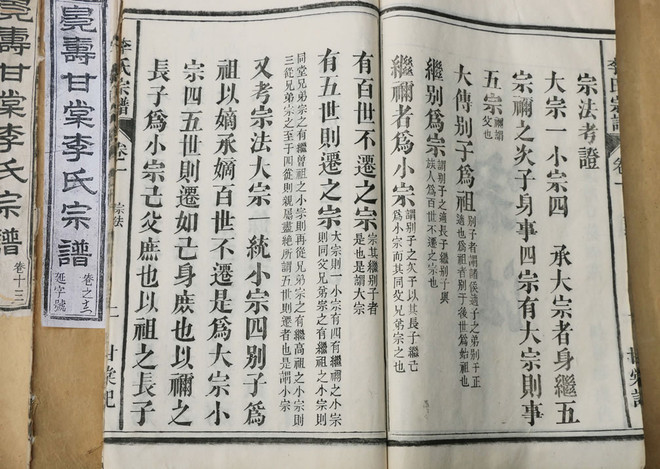 李氏宗譜
宗法考證
大宗一小宗四 承大宗者身繼五
宗禰之次子身事四宗有大宗則事
五宗 禰謂
父也
大傳別子為祖 別子者謂諸侯適子之弟別于正
適也為祖者別于後世為始祖也
繼別為宗 謂別子之適長子繼別子與
族人為百世不遷之宗也
繼禰者為小宗 謂別子之次子以其長子繼己
為小宗而其同父兄弟宗之也
有百世不遷之宗 宗其繼別子者
是也是謂大宗
有五世則遷之宗 大宗則一小宗有四有繼禰之小宗
則同父兄弟宗之有繼祖之小宗則
同堂兄弟宗之有繼曾祖之小宗則再從兄弟宗之有繼高祖之小宗則
三從兄弟宗之至于四從則親屬盡絕所謂五世則遷者也是謂小宗
又考宗法大宗一統小宗四別子為
祖以嫡承嫡百世不遷是為大宗小
宗四五世則遷如己身庶也以禰之
長子為小宗己父庶也以祖之長子
李氏宗譜 卷一 宗法 二 甘棠記
壽甘棠李氏宗譜
延字號
壽甘棠李氏宗譜 卷十三